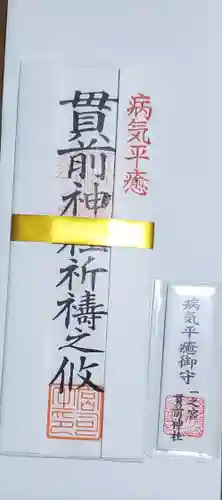 病気平癒
貫前神社祈禱之攸
病気平癒御守
一之宮
貫前神社